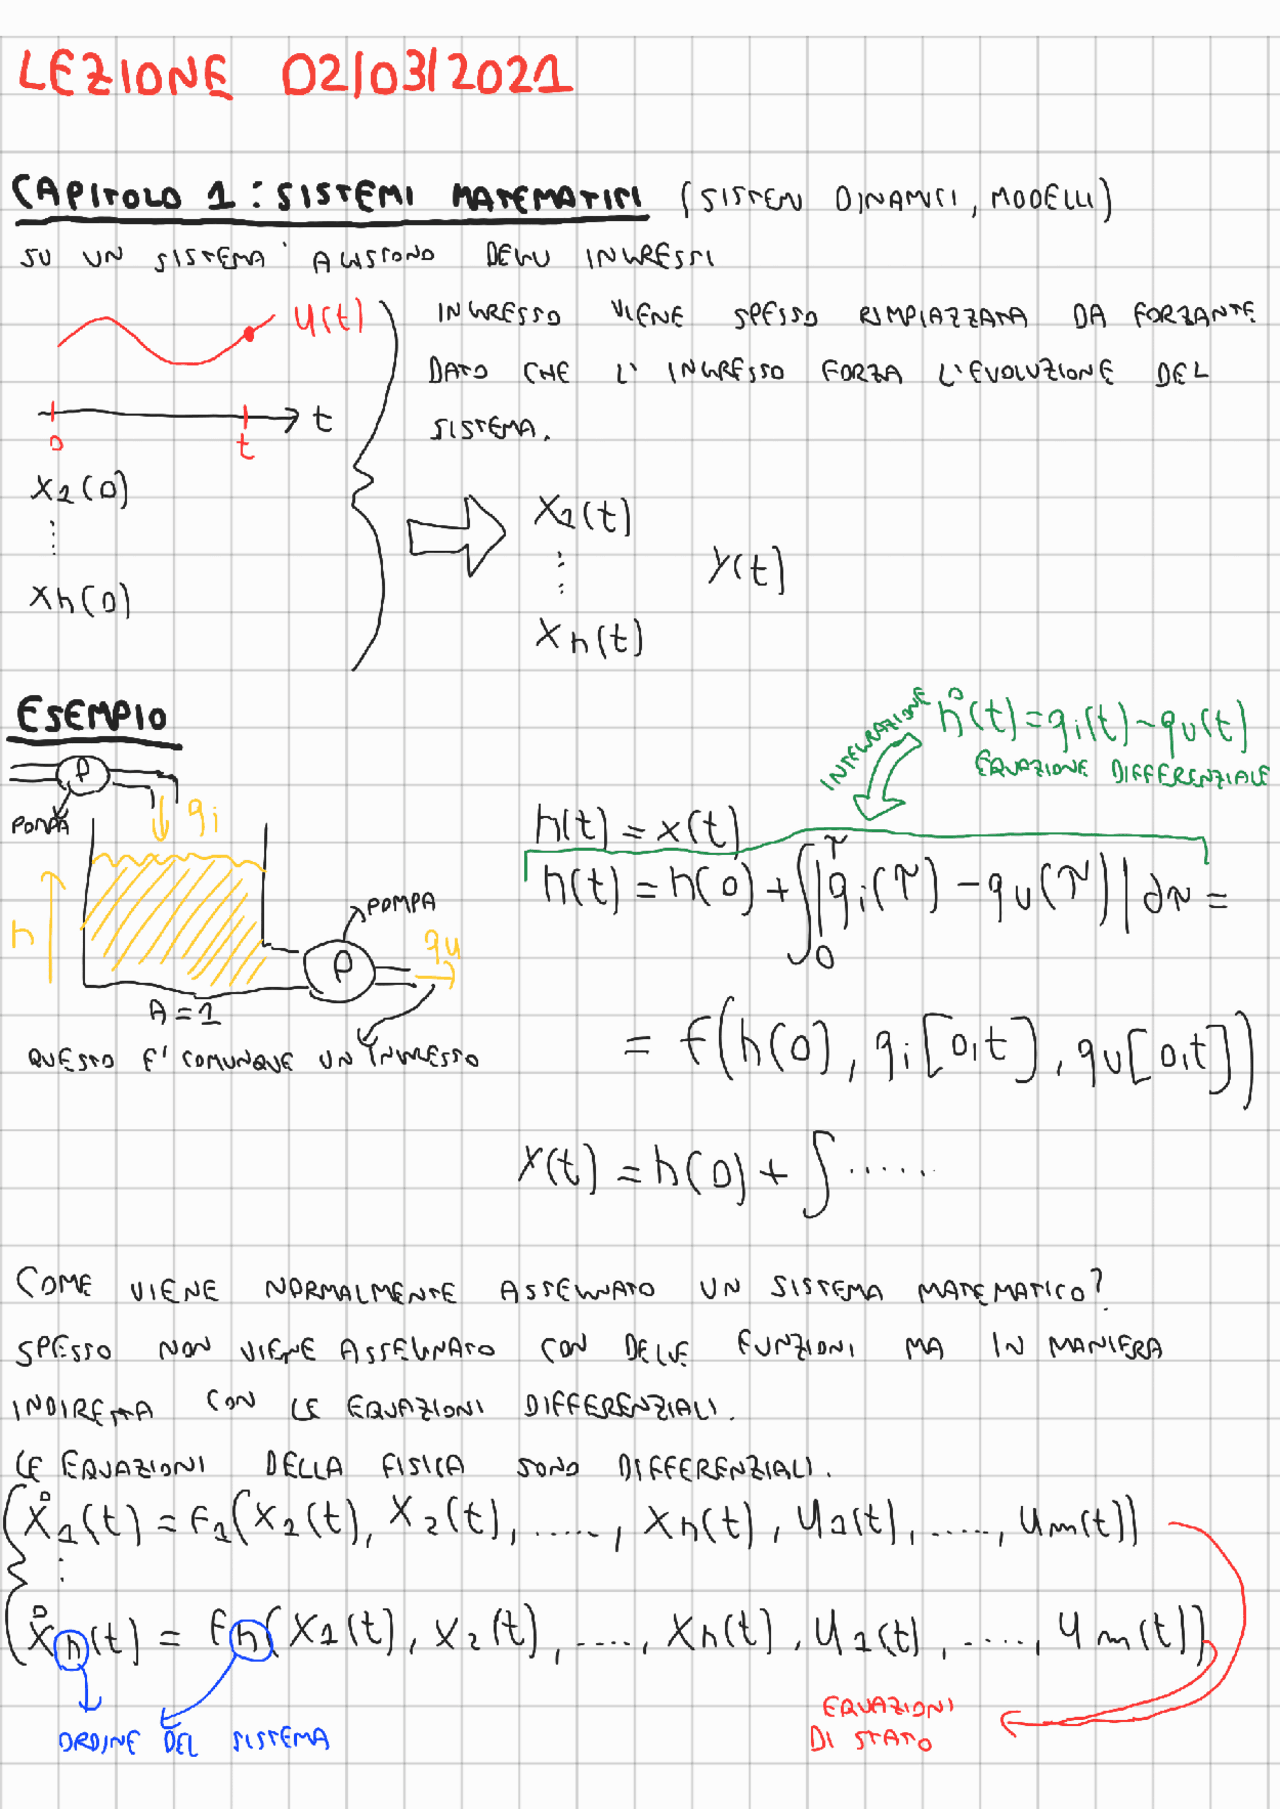 LEZIONE 02/03/2021
CAPITOLO 1: SISTEMI MATEMATICI (SISTEMI DINAMICI, MODELLI)
SU UN SISTEMA AGISCONO DEGLI INGRESSI
u(t)
0 t t
x1(0)
⋮
xn(0)
INGRESSO VIENE SPESSO RIMPIAZZATA DA FORZANTE
DATO CHE L'INGRESSO FORZA L'EVOLUZIONE DEL
SISTEMA.
x1(t)
⋮
xn(t)
y(t)
ESEMPIO
P
POMPA
qi
h
A=1
P
POMPA
qu
QUESTO E' COMUNQUE UN INGRESSO
INTEGRAZIONE
ḣ(t) = qi(t) - qu(t)
EQUAZIONE DIFFERENZIALE
h(t) = x(t)
h(t) = h(0) + ∫₀^τ |qi(τ) - qu(τ)| dτ =
= f(h(0), qi[0,t], qu[0,t])
x(t) = h(0) + ∫ ......
COME VIENE NORMALMENTE ASSEGNATO UN SISTEMA MATEMATICO?
SPESSO NON VIENE ASSEGNATO CON DELLE FUNZIONI MA IN MANIERA
INDIRETTA CON LE EQUAZIONI DIFFERENZIALI.
LE EQUAZIONI DELLA FISICA SONO DIFFERENZIALI.
ẋ1(t) = f1(x1(t), x2(t), ....., xn(t), u1(t), ....., um(t))
⋮
ẋn(t) = fn(x1(t), x2(t), ...., xn(t), u1(t), ...., um(t))
ORDINE DEL SISTEMA
EQUAZIONI
DI STATO